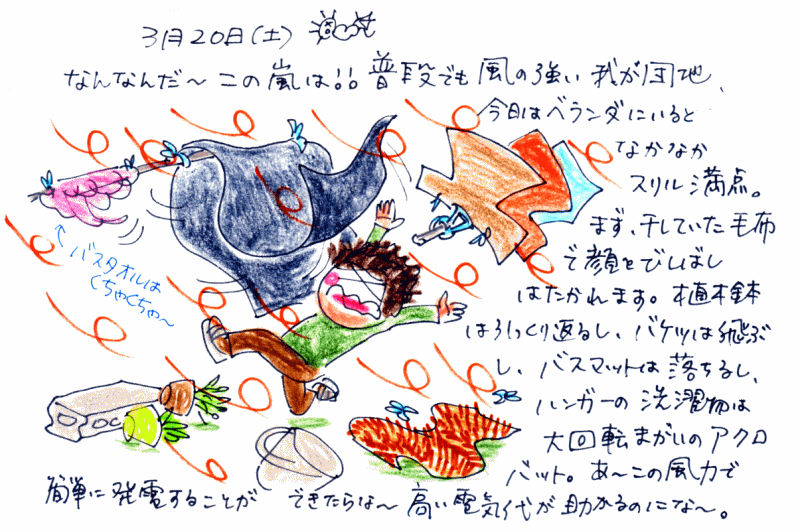 3月20日(土)
なんなんだ～この嵐は!!普段でも風の強い我が団地、
今日はベランダにいると
なかなか
スリル満点。
まず、干していた毛布
で顔をびしばし
はたかれます。植木鉢
はひっくり返るし、バケツは飛ぶ
し、バスマットは落ちるし、
ハンガーの洗濯物は
大回転まがいのアクロ
バット。あ～この風力で
簡単に発電することができたらな～高い電気代が助かるのにな～。
←バスタオルは
くちゃくちゃ～